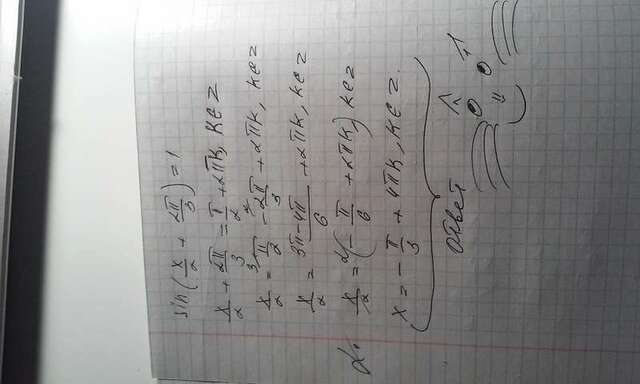 sin(x/2 + 2π/3) = 1
x/2 + 2π/3 = π/2 + 2πk, k ∈ z
x/2 = ³π/2 - ²2π/3 + 2πk, k ∈ z
x/2 = 3π-4π/6 + 2πk, k ∈ z
2· x/2 = ²(- π/6 + 2πk), k ∈ z
x = - π/3 + 4πk, k ∈ z.
Ответ